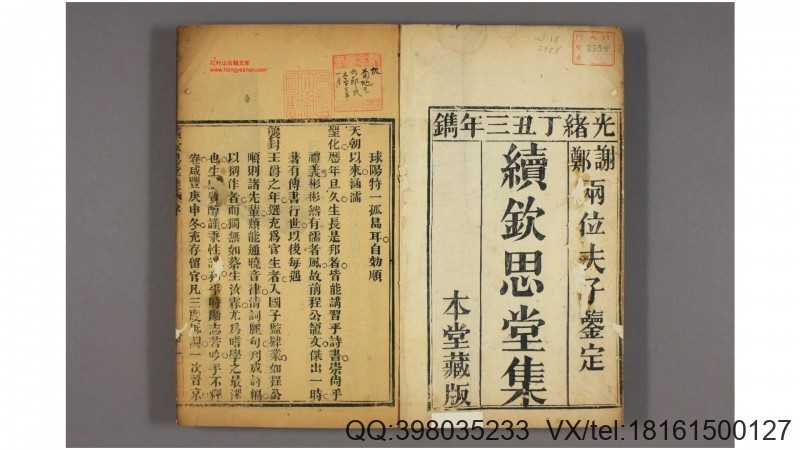 光緒丁丑三年鐫
謝鄭兩位夫子鑒定
續欽思堂集
本堂藏版
球陽特一孤島耳自効順
天朝以來涵濡
聖化曆年且久生長是邦者皆能講習乎詩書崇尚乎
禮義彬彬然有儒者風故前程公龍文傑出一時
著有傳書行世以後每遇
襲封王爵之年選充為官生者入國子監肄業如程公
順則諸先輩類能通曉音律清詞麗句刊成詩稿
以別作者而獨無如蔡生汝霖尤為嗜學之最深
也生 醇謹秉性 時勵志苦吟手不釋
卷咸豐庚申冬充存留官凡三度 一次晉京
红叶山古籍文库
www.hongyeshan.com
QQ:398035233 VX/tel:18161500127